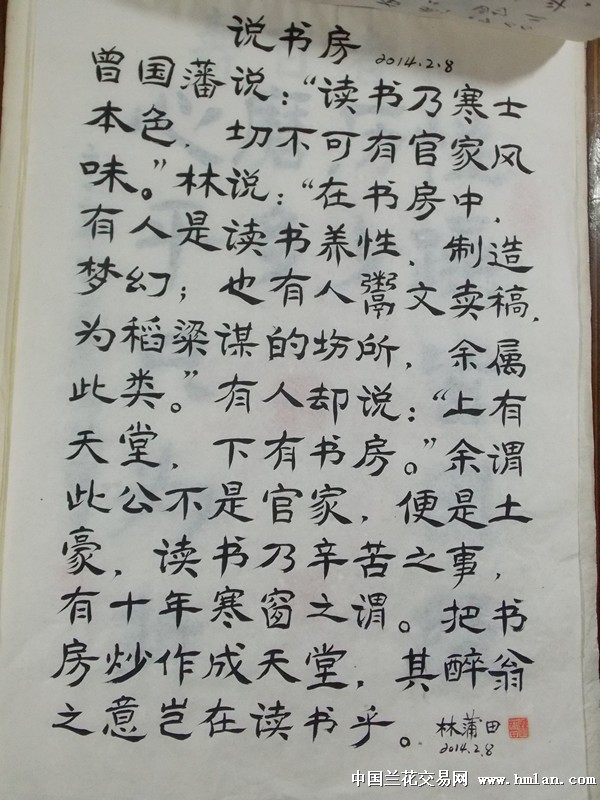 说书房
2014.2.8
曾国藩说：“读书乃寒士
本色，切不可有官家风
味。”林说：“在书房中，
有人是读书养性，制造
梦幻；也有人鬻文卖稿，
为稻粱谋的坊所，余属
此类。”有人却说：“上有
天堂，下有书房。”余谓
此公不是官家，便是土
豪，读书乃辛苦之事，
有十年寒窗之谓。把书
房炒作成天堂，其醉翁
之意岂在读书乎。
林蒲田
2014.2.8
中国兰花交易网 www.hmlan.com